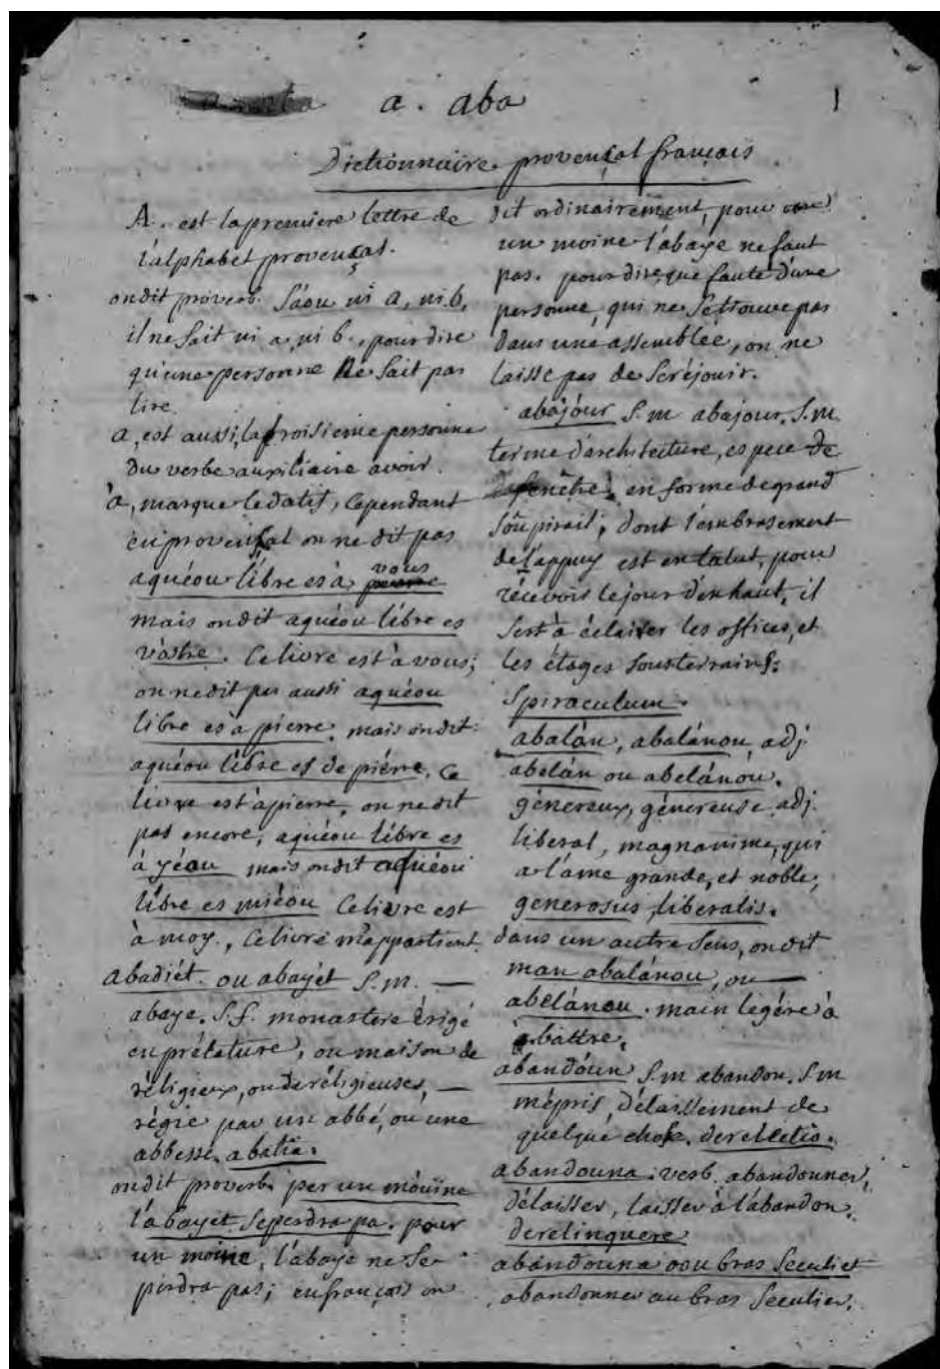 a. aba
1
Dictionnaire provençal français
A. est la premiere lettre de
l'alphabet provençal.
on dit proverb. Sáou ni a, ni b,
il ne sait ni a ni b, pour dire
qu'une personne ne sait pas
lire.
a, est aussi, la troisieme personne
du verbe auxiliaire avoir.
à, marque le datif, cependant
en provençal on ne dit pas
aquéou libre es à vous
mais on dit aquéou libre es
vostre. Ce livre est à vous;
on ne dit pas aussi aquéou
libre es à pierre, mais on dit
aquéou libre es de piérre, ce
livre est à pierre, on ne dit
pas encore, aquéou libre es
à yéou mais on dit aquéou
libre es miéou Ce livre est
à moy, Ce livre m'appartient.
abadiét. ou abayét s.m. —
abaye. s.f. monastere érigé
en prélature, ou maison de
réligieux, ou de réligieuses, —
régie par un abbé, ou une
abbesse. abatia.
on dit proverb. per un móuine
l'abayet se perdra pa. pour
un moine, l'abaye ne se
perdra pas; en françois on
dit ordinairement, pour
un moine l'abaye ne faut
pas. pour dire, que faute d'une
personne, qui ne se trouve pas
dans une assemblée, on ne
laisse pas de se réjouir.
abajóur s.m abajour. s.m.
terme d'architecture, espece de
fenêtre, en forme de grand
soûpirail, dont l'embrasement
de l'appuy est en talut, pour
récevoir le jour d'en haut, il
sert à éclairer les offices, et
les étages sousterrains.
Spiraculum.
abalán, abalánou, adj
abelán ou abelánou.
génereux, génereuse adj.
liberal, magnanime, qui
a l'ame grande, et noble,
generosus, liberalis.
dans un autre sens, on dit
man abalánou, ou —
abelánou. main legére à
battre.
abandóun s.m abandon. s.m
mépris, délaissement de
quelque chose. derelictio.
abandouna. verb. abandonner,
délaisser, laisser à l'abandon.
derelinquere
abandouna oou bras Seculiet
abandonner au bras Seculier.